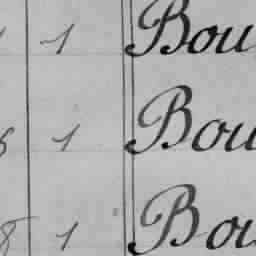 1 Bou
1 Bou
8 1 Bou